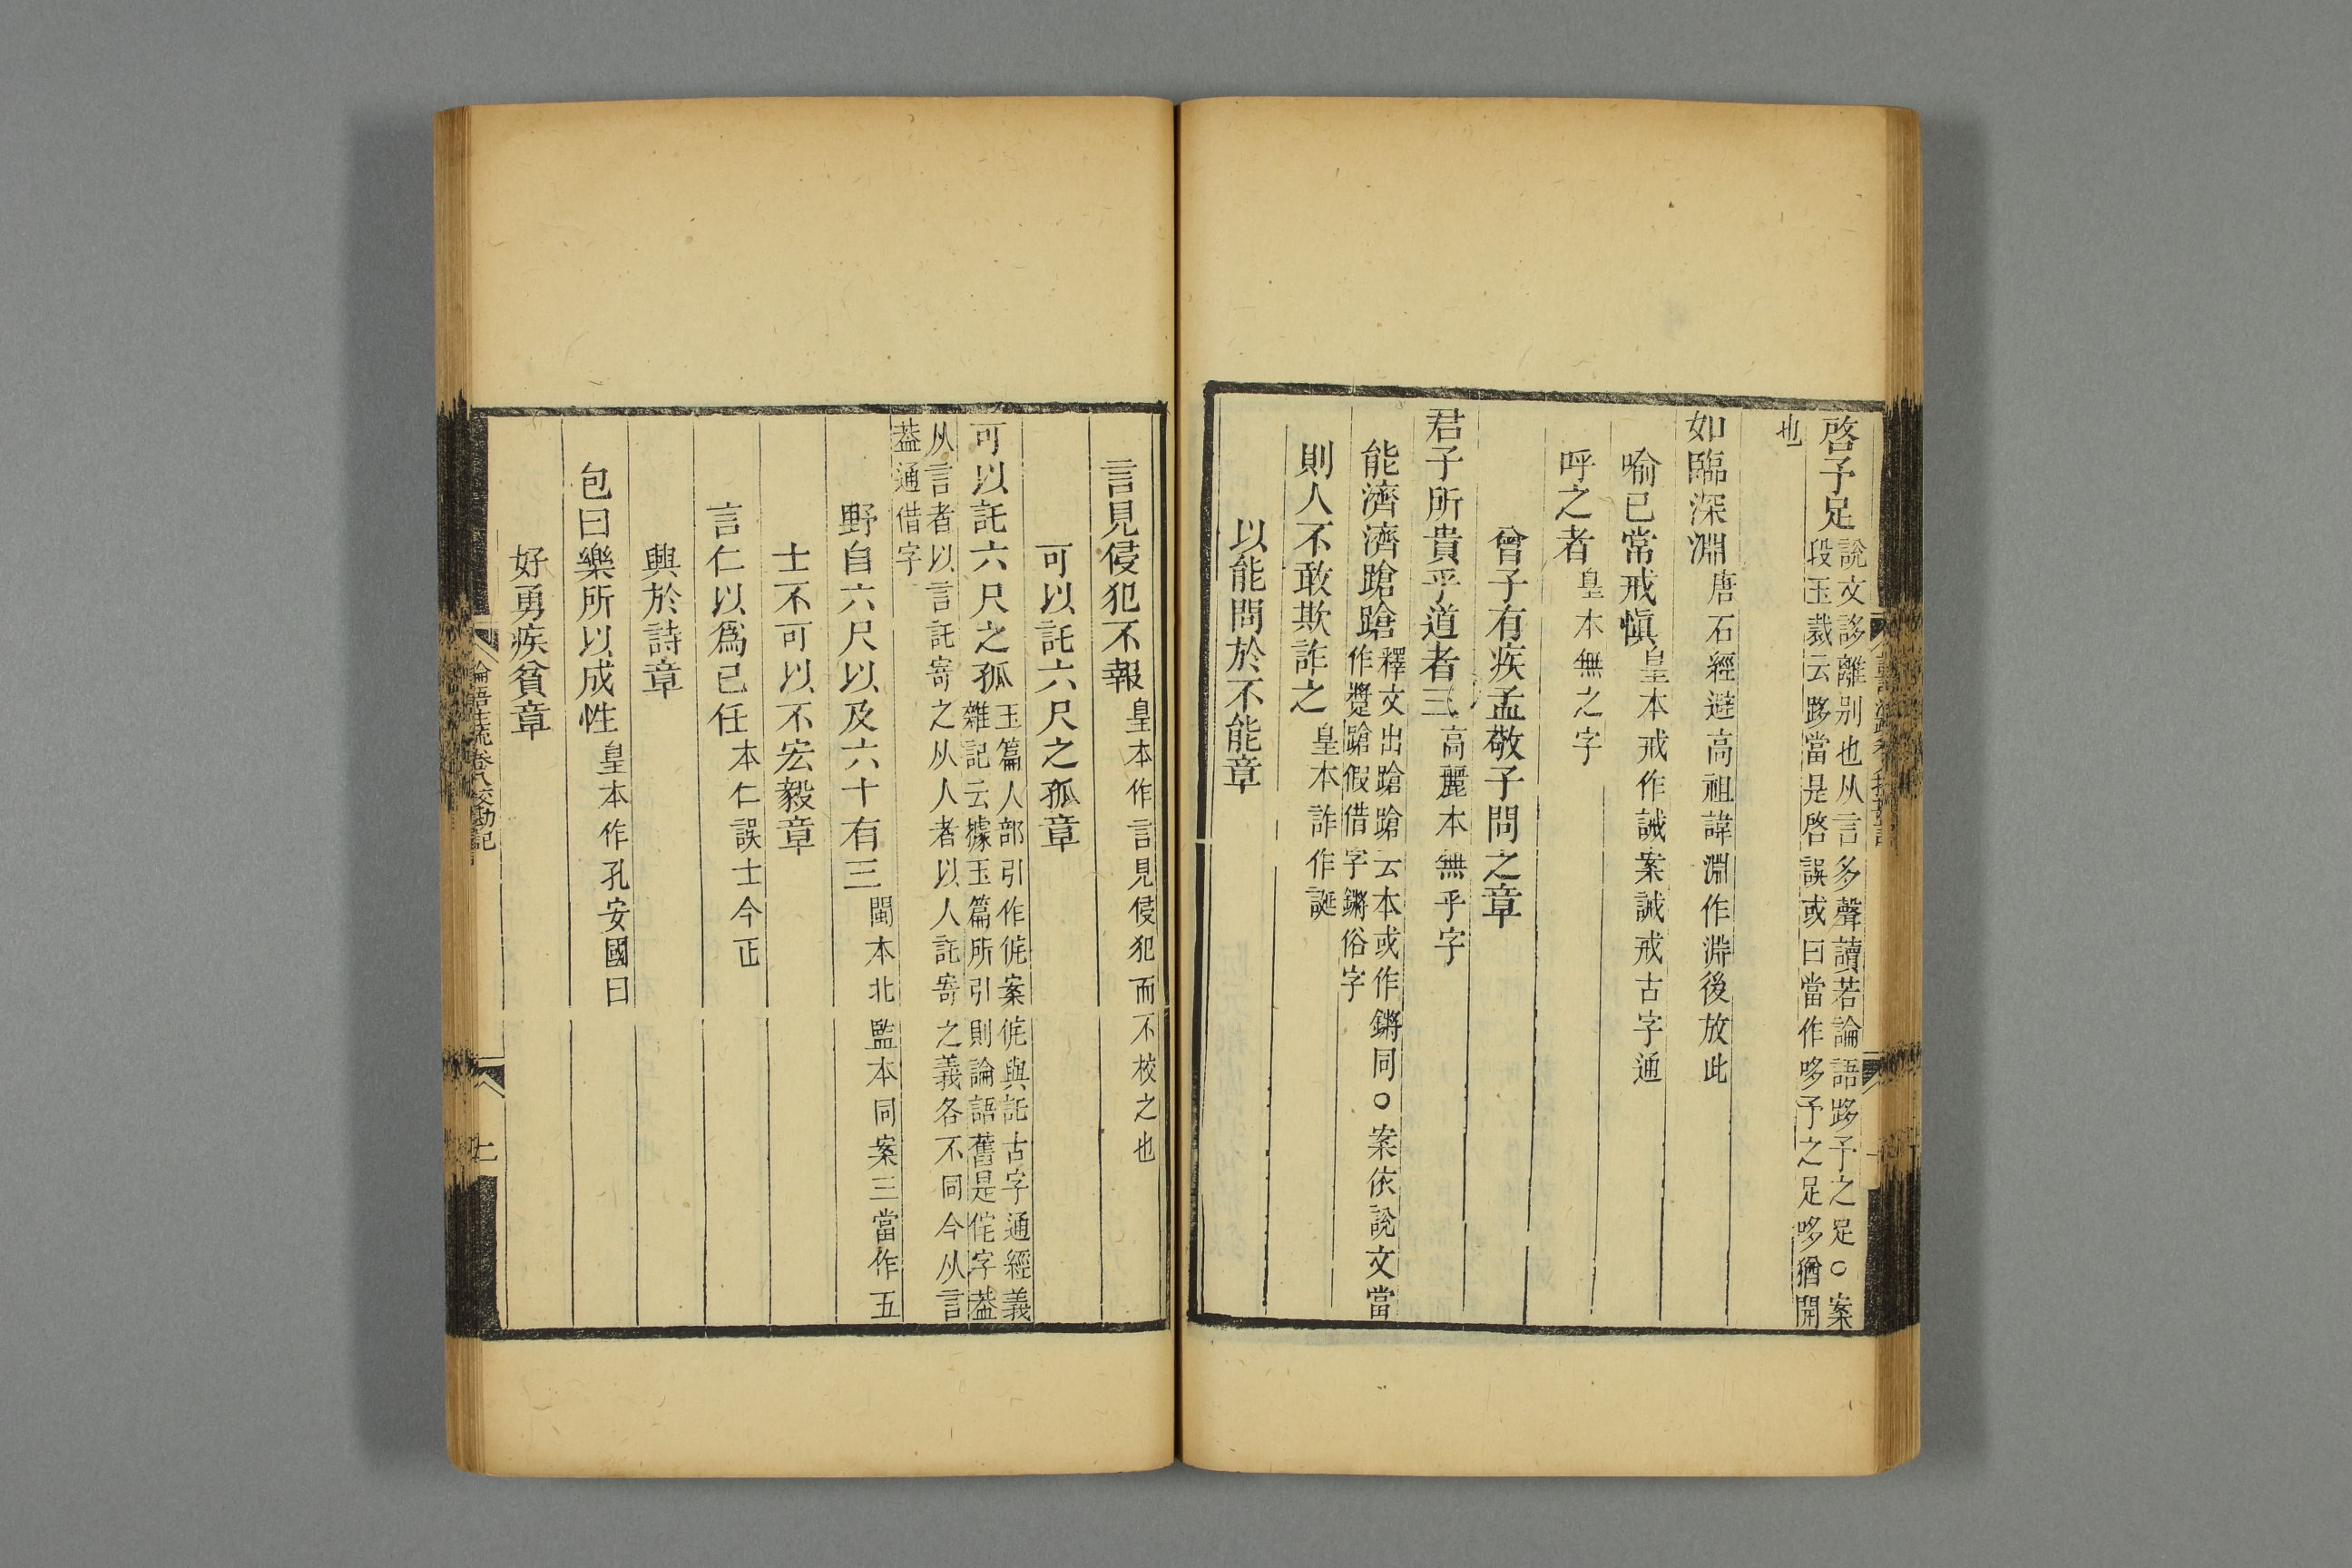 啓予足說文誃離別也从言多聲讀若論語跢予之足○案
段玉裁云跢當是啓誤或曰當作哆予之足哆猶開
也
如臨深淵唐石經避高祖諱淵作渊後放此
喻已常戒愼皇本戒作誡案誡戒古字通
呼之者皇本無之字
曾子有疾孟敬子問之章
君子所貴乎道者三高麗本無乎字
能濟濟蹌蹌釋文出蹌蹌云本或作鏘同○案依說文當
作蹩蹌假借字鏘俗字
則人不敢欺詐之皇本詐作誕
以能問於不能章
言見侵犯不報皇本作言見侵犯而不校之也
可以託六尺之孤章
可以託六尺之孤玉篇人部引作侂案侂與託古字通經義
雜記云據玉篇所引則論語舊是侂字葢
从言者以言託寄之从人者以人託寄之義各不同今从言
葢通借字
野自六尺以及六十有三閩本北監本同案三當作五
士不可以不宏毅章
言仁以爲已任本仁誤士今正
興於詩章
包曰樂所以成性皇本作孔安國曰
好勇疾貧章
論語注疏卷八校勘記
七